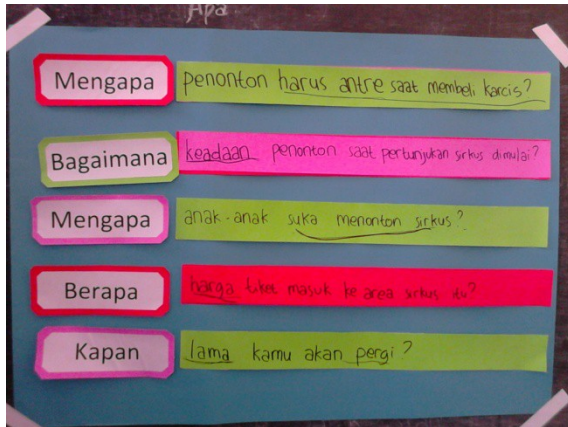 Apa
Mengapa penonton harus antre saat membeli karcis?
Bagaimana keadaan penonton saat pertunjukan sirkus dimulai?
Mengapa anak-anak suka menonton sirkus?
Berapa harga tiket masuk ke area sirkus itu?
Kapan lama kamu akan pergi?